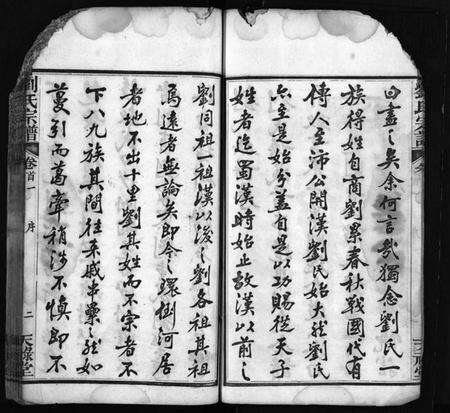 曰盡之矣余何言哉獨念劉氏一
族得姓自商劉累春秋戰國代有
傳人至沛公開漢劉氏始大然劉氏
亦至是始分蓋自是以功賜從天子
姓者迄蜀漢時始止故漢以前之
劉同祖一祖漢以後之劉各祖其祖
焉遠者無論矣即今之環樹河居
者地不出十里劉其姓而不宗者不
下八九族其間往來戚串纍纍然如
蔓引而葛牽稍涉不慎即不
劉氏宗譜 卷首一 序 二 天祿堂